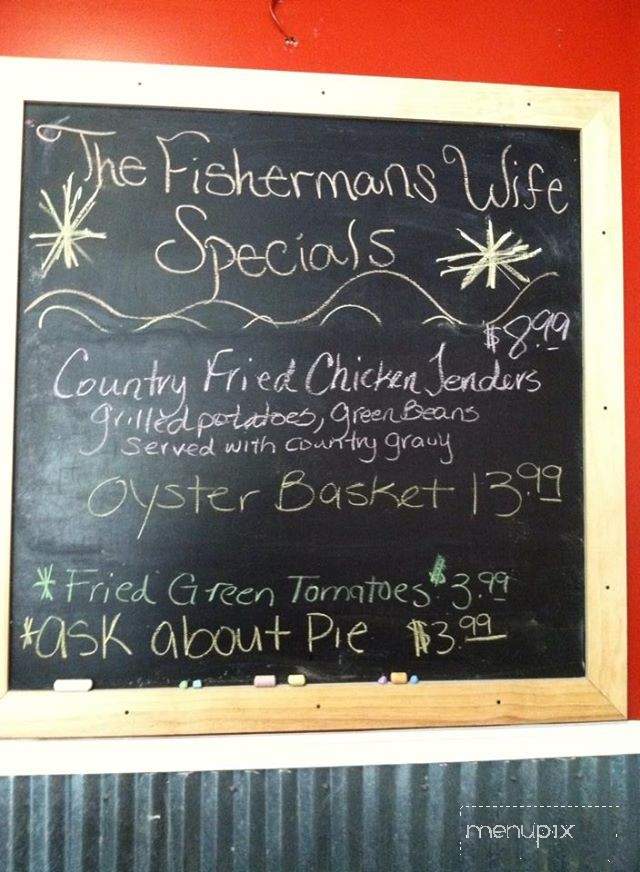 The Fishermans Wife
Specials
$8.99
Country Fried Chicken Tenders
grilled potatoes, Green Beans
served with country gravy
Oyster Basket 13.99
*Fried Green Tomatoes $3.99
*ask about Pie $3.99
menupix